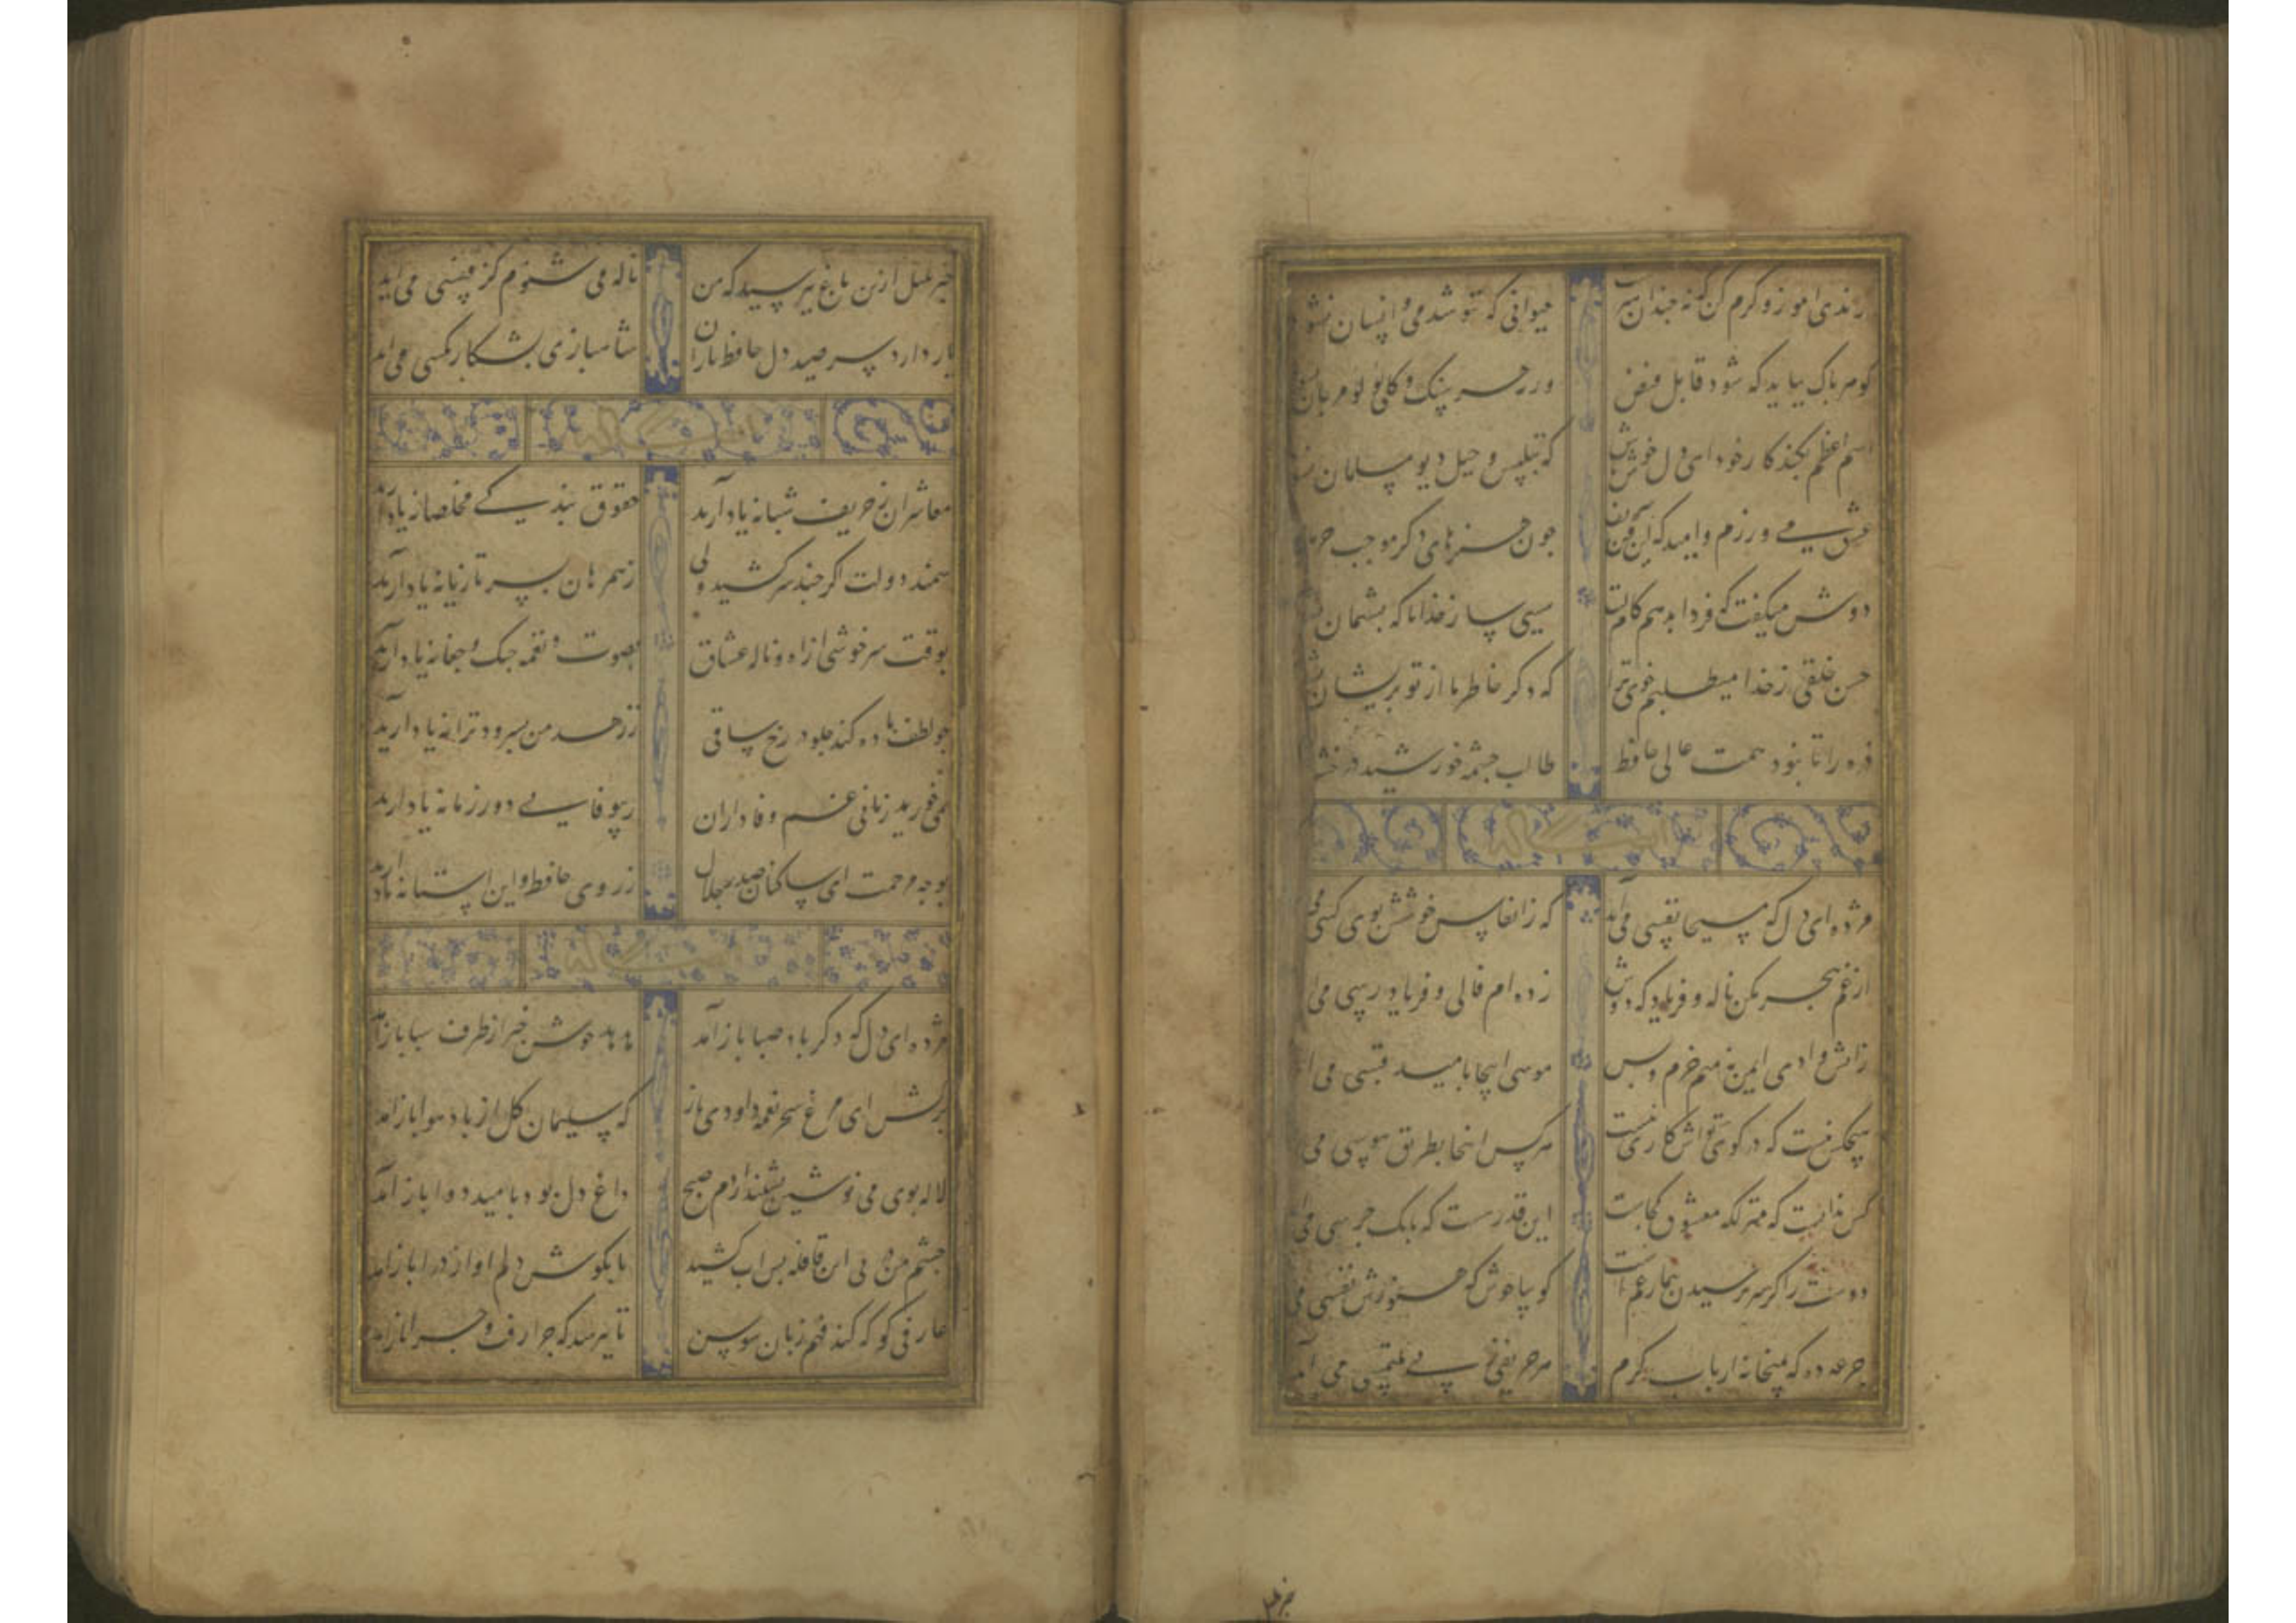 رندی اموز و کرم کن که نه چندان هنرست حیوانی که ننوشد می و انسان نشود
گوهر پاک بباید که شود قابل فیض ورنه هر سنگ و کلی لولو مرجان نشود
اسم اعظم بکند کار خود ای دل خوش باش که بتلبیس و حیل دیو مسلمان نشود
عشق می ورزم و امید که این فن شریف چون هنرهای دکر موجب حرمان
دوش میکفت که فردا بدهم کام دلت سببی ساز خدایا که پشیمان نشود
حسن خلقی ز خدا میطلبم خوی ترا که دکر خاطر ما از تو پریشان نشود
ذره را تا نبود همت عالی حافظ طالب چشمه خورشید درخشان
مژده ای دل که مسیحا نفسی می آید که ز انفاس خوشش بوی کسی می
از غم هجر مکن ناله و فریاد که دوش زده ام فالی و فریاد رسی می
زاتش وادی ایمن نه منم خرم و بس موسی اینجا بامید قبسی می
هیچکس نیست که در کوی تواش کاری نیست هرکس اینجا بطریق هوسی می
کس ندانست که منزلکه معشوق کجاست این قدرست که بانک جرسی می
دوست را کر سر پرسیدن بیمار غم است کو بیا خوش که هنوزش نفسی می
جرعه ده که بمیخانه ارباب کرم هر حریفی ز پی ملتمسی می آید
خبر بلبل
خبر بلبل ازین باغ بپرسید که من ناله می شنوم کز قفسی می آید
یار دارد سر صید دل حافظ یاران شاهبازی بشکار مکسی می آید
معاشران ز حریف شبانه یاد آرید حقوق بندگی مخلصانه یاد آرید
سمند دولت اکر چند سرکشیده ولی ز همرهان بسر تازیانه یاد آرید
بوقت سرخوشی از اه و ناله عشاق بصوت و نغمه چنک و چغانه یاد آرید
چو لطف باده کند جلوه در رخ ساقی ز زهد من بسرود ترانه یاد آرید
نمی خورید زمانی غم وفاداران ز بیوفایی دور زمانه یاد آرید
بوجه مرحمت ای ساکنان صدر جلال ز روی حافظ و این استانه یاد آرید
مژده ای دل که دکر باد صبا باز آمد هدهد خوش خبر از طرف سبا باز آمد
برکش ای مرغ سحر نغمه داودی باز که سلیمان کل از باد هوا باز آمد
لاله بوی می نوشین بشنید از دم صبح داغ دل بود بامید دوا باز آمد
چشم من در پی این قافله بس اب کشید تا بکوش دلم اواز درا باز آمد
عارفی کو که کند فهم زبان سوسن تا بپرسد که چرا رفت و چرا باز آمد